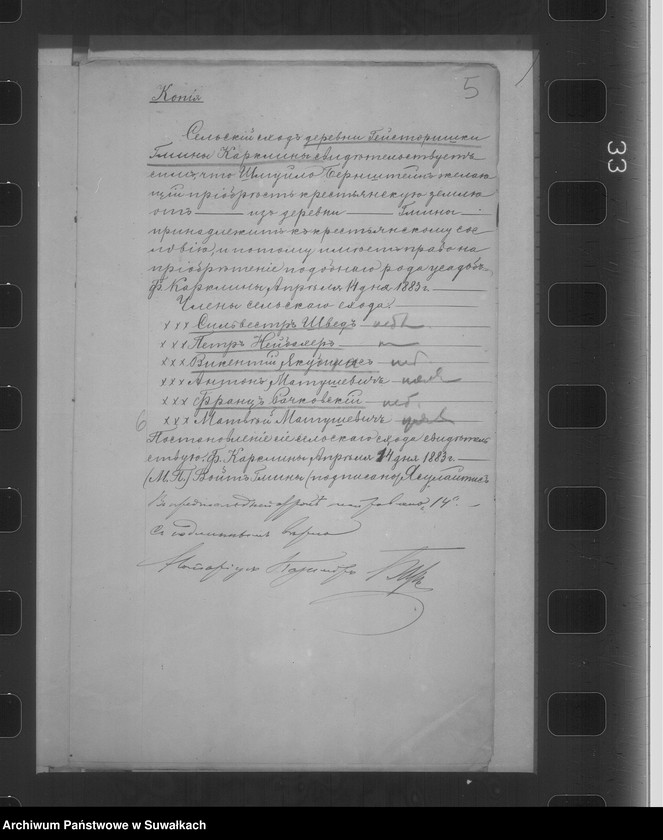 5
Копія
Сельскій сходъ деревни Гейсторишки
Гмины Карклины свидѣтельствуетъ
симъ, что Шмуйло Бернштейнъ желаю
щій пріобрѣсть крестьянскую землю
отъ ——— изъ деревни ——— Гмины —
принадлежитъ къ крестьянскому сос
ловію, и потому имѣетъ право на
пріобрѣтеніе подобнаго рода усадьбъ
ф. Карклины Апрѣля 14 дня 1883 г.
Члены сельскаго схода:
х х х Сильвестръ Шведъ
х х х Петръ
х х х Викентій
х х х Антонъ Матушевичъ
х х х Францъ Рачковскій
6 х х х Матвѣй Матушевичъ
Постановленіе сіе сельскаго схода свидѣтель
ствую. ф. Карклины Апрѣля 14 дня 1883 г.
(М. П.) Войтъ Гмины (подписано) Якулайтисъ
14
Съ подлинномъ вѣрно
Нотаріусъ
33
Archiwum Państwowe w Suwałkach